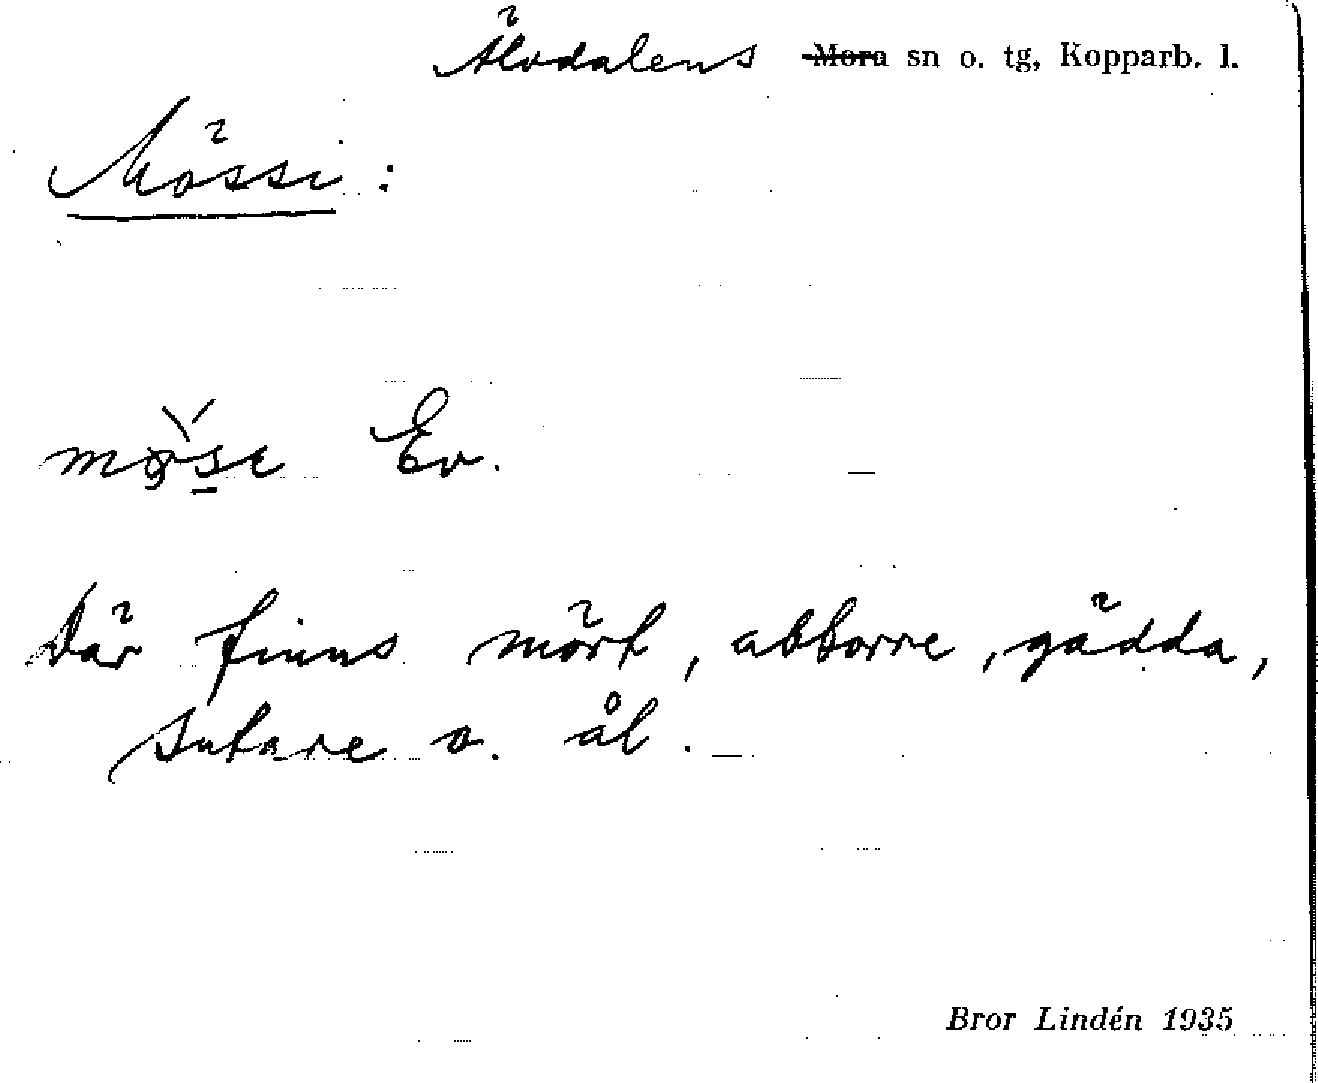 Älvdalens Mora sn o. tg, Kopparb. l.
Mössi:
Ev.
Där finns mört, abborre, gädda,
sutare o. ål.
Bror Lindén 1935